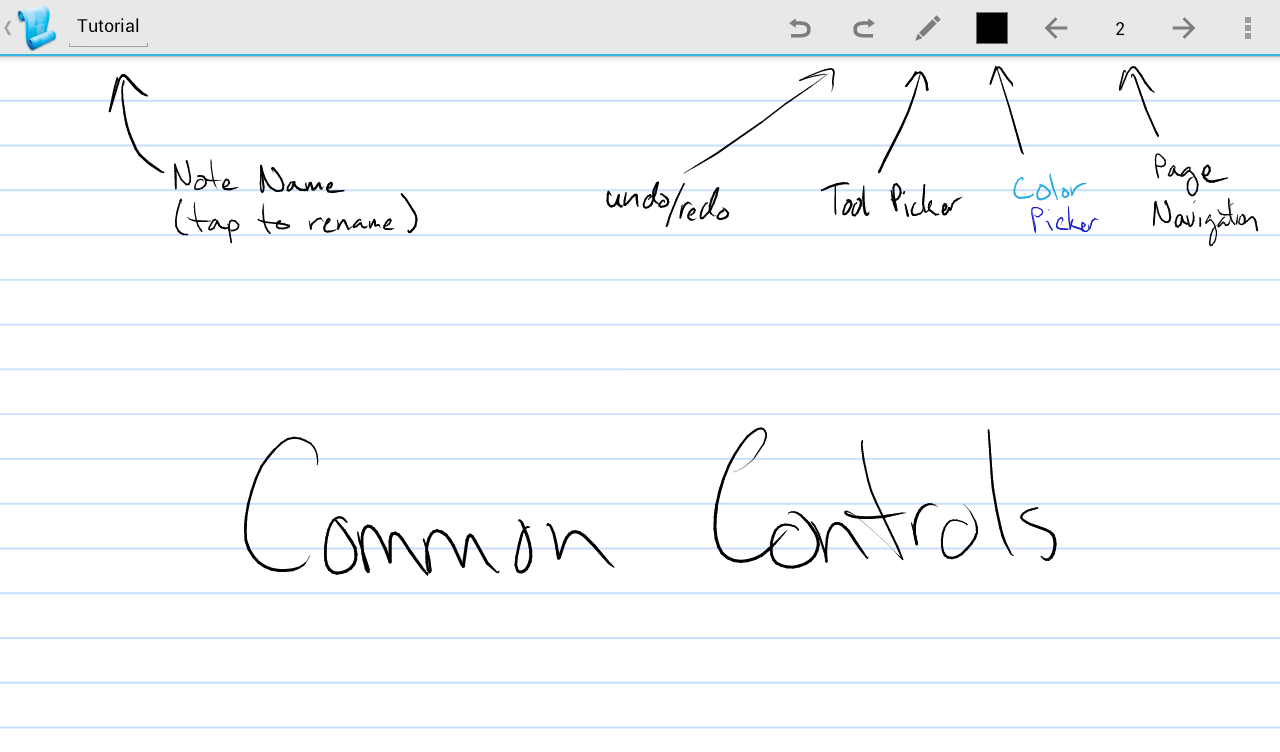 Tutorial
2
Note Name
(tap to rename)
undo/redo
Tool Picker
Color
Picker
Page
Navigation
Common Controls